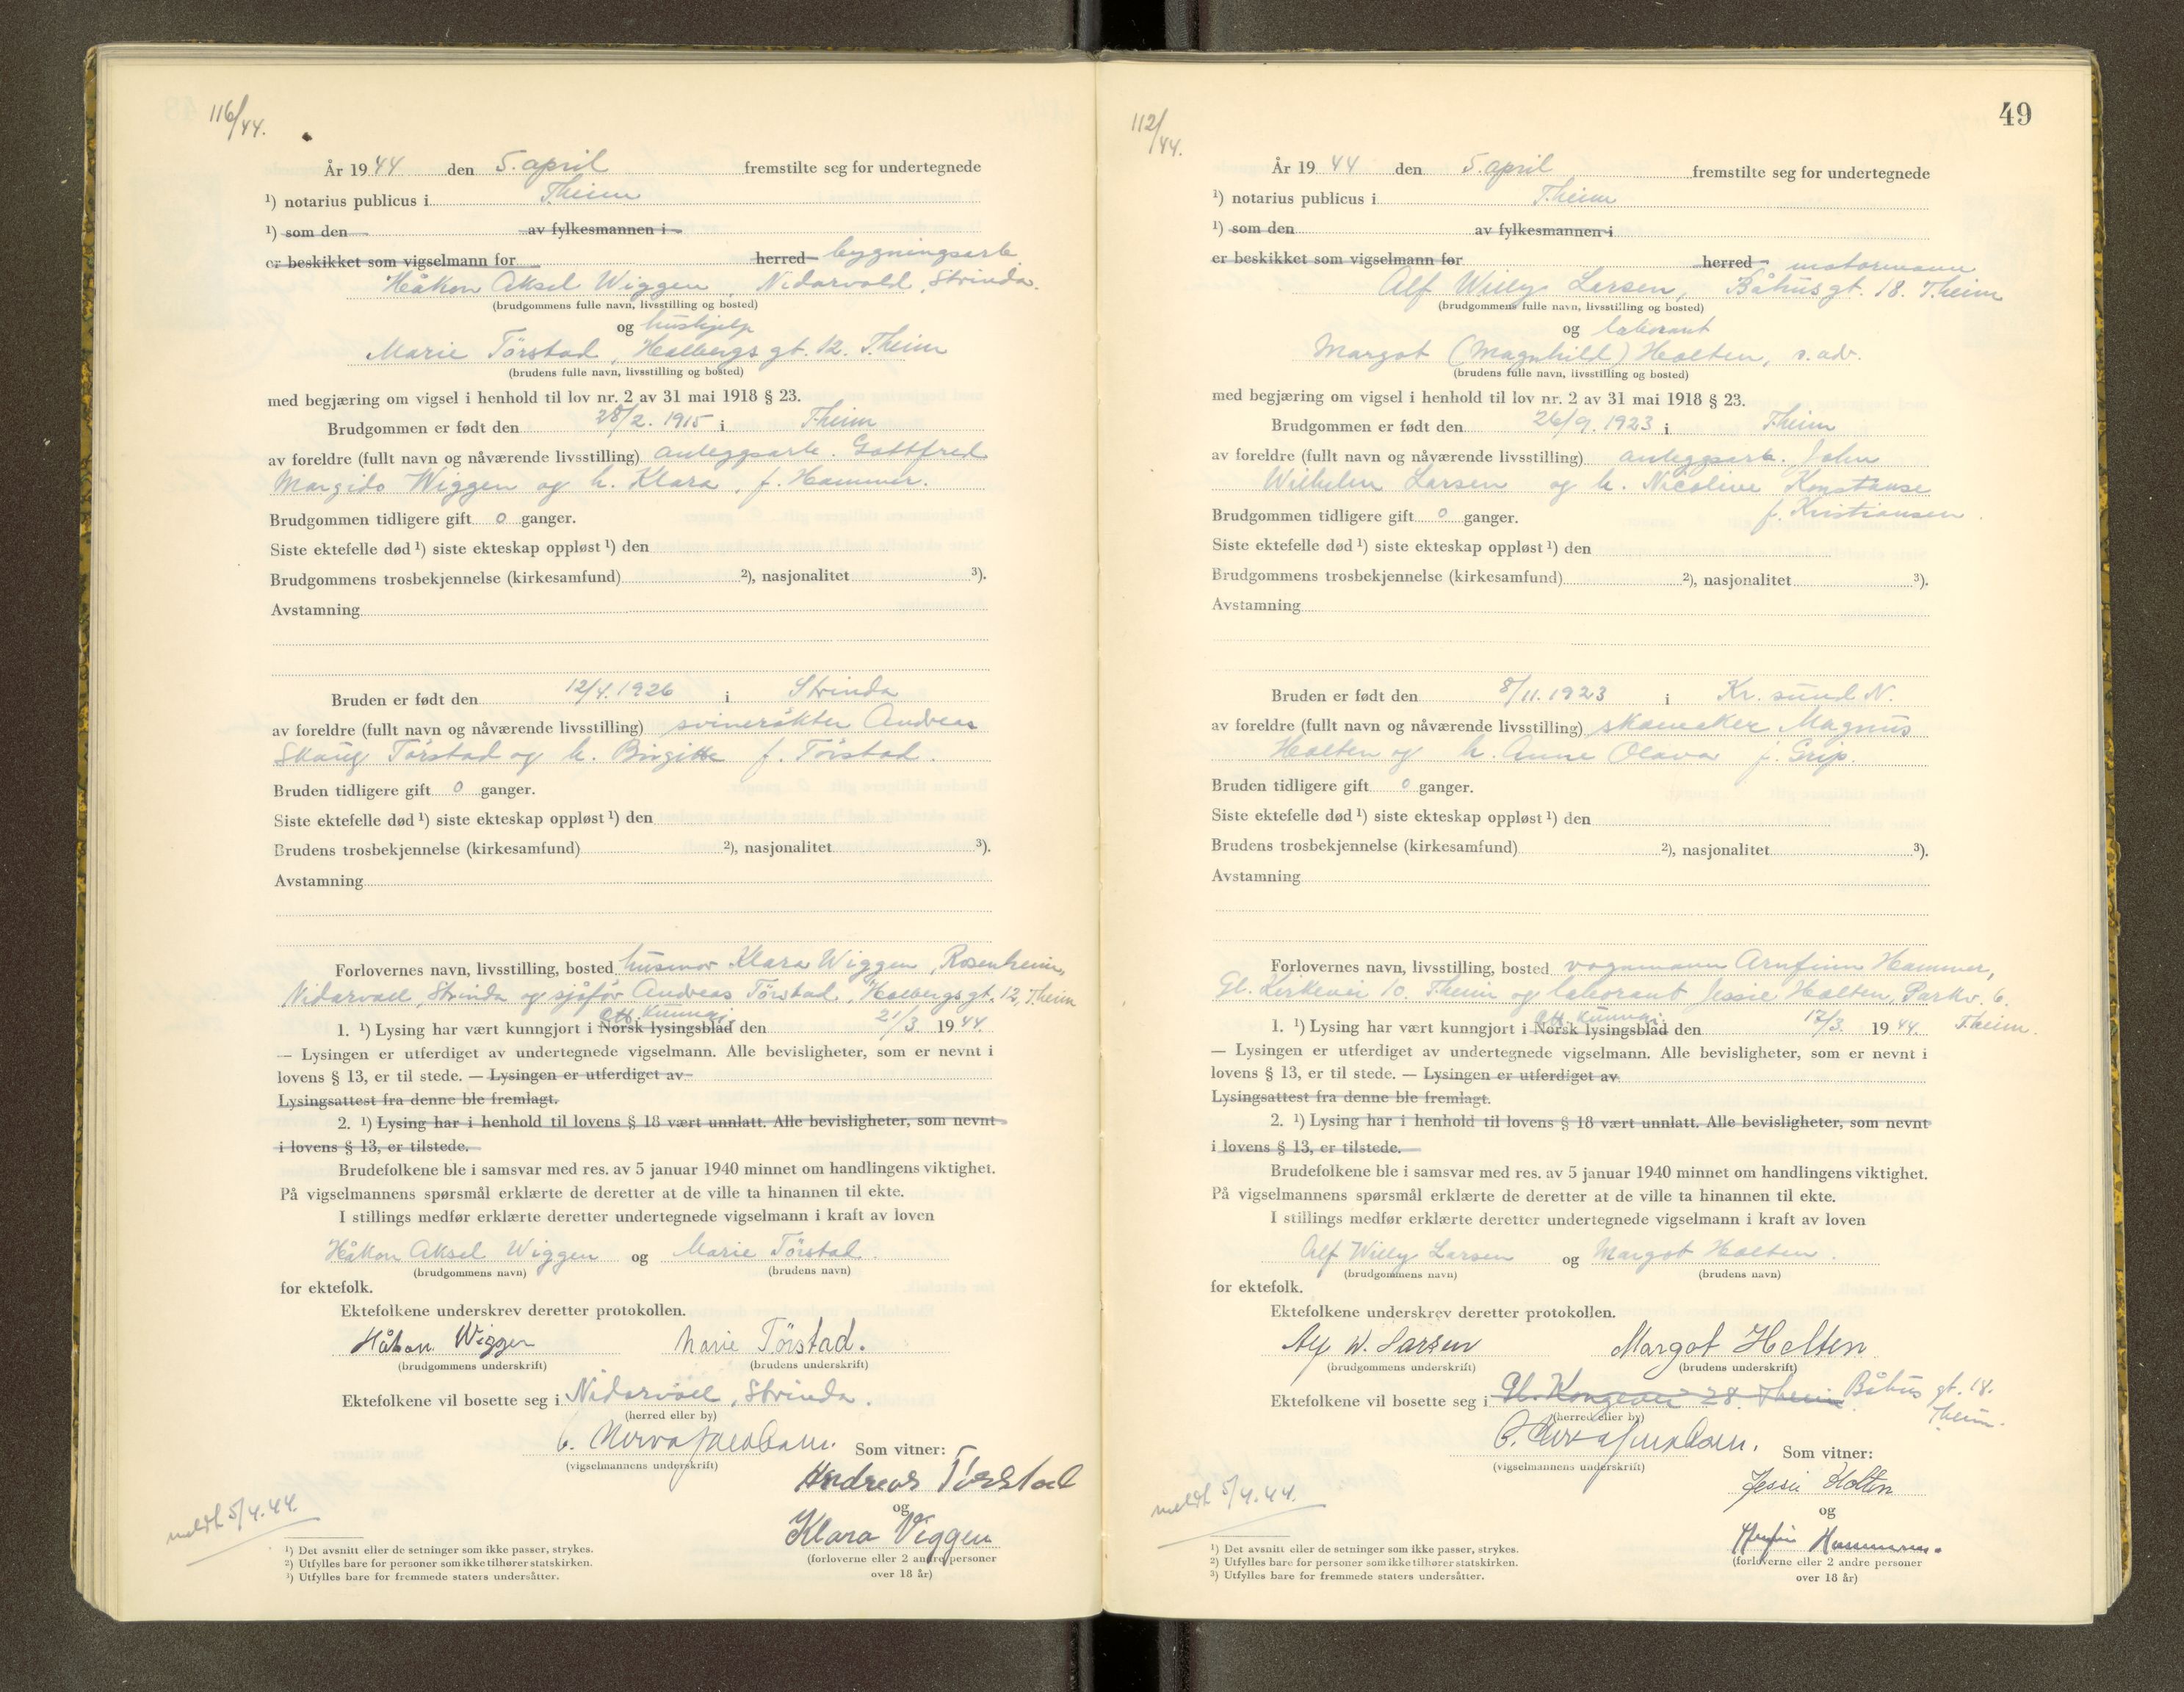 116/44.
År 19 44 den 5. april fremstilte seg for undertegnede
¹) notarius publicus i T.heim
¹) som den av fylkesmannen i
er beskikket som vigselmann for herred bygningsarb.
Håkon Aksel Wiggen, Nidarvoll, Strinda.
(brudgommens fulle navn, livsstilling og bosted)
og hushjelp
Marie Törstad, Holbergs gt. 12. T.heim
(brudens fulle navn, livsstilling og bosted)
med begjæring om vigsel i henhold til lov nr. 2 av 31 mai 1918 § 23.
Brudgommen er født den 28/2. 1915 i T.heim
av foreldre (fullt navn og nåværende livsstilling) anleggsarb. Gottfred
Margido Wiggen og h. Klara, f. Hammer.
Brudgommen tidligere gift 0 ganger.
Siste ektefelle død ¹) siste ekteskap oppløst ¹) den
Brudgommens trosbekjennelse (kirkesamfund) ²), nasjonalitet ³).
Avstamning
Bruden er født den 12/4. 1926 i Strinda
av foreldre (fullt navn og nåværende livsstilling) svinerøkter Andreas
Skaug Törstad og h. Birgitte f. Törstad.
Bruden tidligere gift 0 ganger.
Siste ektefelle død ¹) siste ekteskap oppløst ¹) den
Brudens trosbekjennelse (kirkesamfund) ²), nasjonalitet ³).
Avstamning
Forlovernes navn, livsstilling, bosted husmor Klara Wiggen, Rosenheim,
Nidarvoll, Strinda og sjåför Andreas Törstad, Holbergs gt. 12, T.heim
Off. kunngj.
1. ¹) Lysing har vært kunngjort i Norsk lysingsblad den 21/3. 19 44.
— Lysingen er utferdiget av undertegnede vigselmann. Alle bevisligheter, som er nevnt i
lovens § 13, er til stede. — Lysingen er utferdiget av
Lysingsattest fra denne ble fremlagt.
2. ¹) Lysing har i henhold til lovens § 18 vært unnlatt. Alle bevisligheter, som nevnt
i lovens § 13, er tilstede.
Brudefolkene ble i samsvar med res. av 5 januar 1940 minnet om handlingens viktighet.
På vigselmannens spørsmål erklærte de deretter at de ville ta hinannen til ekte.
I stillings medfør erklærte deretter undertegnede vigselmann i kraft av loven
Håkon Aksel Wiggen og Marie Törstad.
(brudgommens navn) (brudens navn)
for ektefolk.
Ektefolkene underskrev deretter protokollen.
Håkon Wiggen Marie Törstad.
(brudgommens underskrift) (brudens underskrift)
Ektefolkene vil bosette seg i Nidarvoll, Strinda.
(herred eller by)
Som vitner:
(vigselmannens underskrift)
Andreas Törstad
og
Klara Viggen
meldt 5/4.44.
(forloverne eller 2 andre personer
over 18 år)
¹) Det avsnitt eller de setninger som ikke passer, strykes.
²) Utfylles bare for personer som ikke tilhører statskirken.
³) Utfylles bare for fremmede staters undersåtter.
49
112/44.
År 19 44 den 5. april fremstilte seg for undertegnede
¹) notarius publicus i T.heim
¹) som den av fylkesmannen i
er beskikket som vigselmann for herred motormann
Alf Willy Larsen, Båhus gt. 18. T.heim
(brudgommens fulle navn, livsstilling og bosted)
og laborant
Margot (Magnhild) Holten, s. adr.
(brudens fulle navn, livsstilling og bosted)
med begjæring om vigsel i henhold til lov nr. 2 av 31 mai 1918 § 23.
Brudgommen er født den 26/9. 1923 i T.heim
av foreldre (fullt navn og nåværende livsstilling) anleggsarb. John
Wilhelm Larsen og h. Nicoline Konstanse
f. Kristiansen
Brudgommen tidligere gift 0 ganger.
Siste ektefelle død ¹) siste ekteskap oppløst ¹) den
Brudgommens trosbekjennelse (kirkesamfund) ²), nasjonalitet ³).
Avstamning
Bruden er født den 8/11. 1923 i Kr. sund N.
av foreldre (fullt navn og nåværende livsstilling) skomaker Magnus
Holten og h. Anne Olava f. Grip.
Bruden tidligere gift 0 ganger.
Siste ektefelle død ¹) siste ekteskap oppløst ¹) den
Brudens trosbekjennelse (kirkesamfund) ²), nasjonalitet ³).
Avstamning
Forlovernes navn, livsstilling, bosted vognmann Arnfinn Hammer,
Gl. Kirkevei 10. T.heim og laborant Jessie Holten, Parkv. 6.
T.heim.
Off. kunngj.
1. ¹) Lysing har vært kunngjort i Norsk lysingsblad den 17/3. 19 44.
— Lysingen er utferdiget av undertegnede vigselmann. Alle bevisligheter, som er nevnt i
lovens § 13, er til stede. — Lysingen er utferdiget av
Lysingsattest fra denne ble fremlagt.
2. ¹) Lysing har i henhold til lovens § 18 vært unnlatt. Alle bevisligheter, som nevnt
i lovens § 13, er tilstede.
Brudefolkene ble i samsvar med res. av 5 januar 1940 minnet om handlingens viktighet.
På vigselmannens spørsmål erklærte de deretter at de ville ta hinannen til ekte.
I stillings medfør erklærte deretter undertegnede vigselmann i kraft av loven
Alf Willy Larsen og Margot Holten.
(brudgommens navn) (brudens navn)
for ektefolk.
Ektefolkene underskrev deretter protokollen.
Alf W. Larsen Margot Holten
(brudgommens underskrift) (brudens underskrift)
Ektefolkene vil bosette seg i Gl. Kongevei 28. T.heim Båhus gt. 18.
T.heim.
(herred eller by)
Som vitner:
(vigselmannens underskrift)
Jessie Holten
og
Arnfinn Hammer.
meldt 5/4.44.
(forloverne eller 2 andre personer
over 18 år)
¹) Det avsnitt eller de setninger som ikke passer, strykes.
²) Utfylles bare for personer som ikke tilhører statskirken.
³) Utfylles bare for fremmede staters undersåtter.